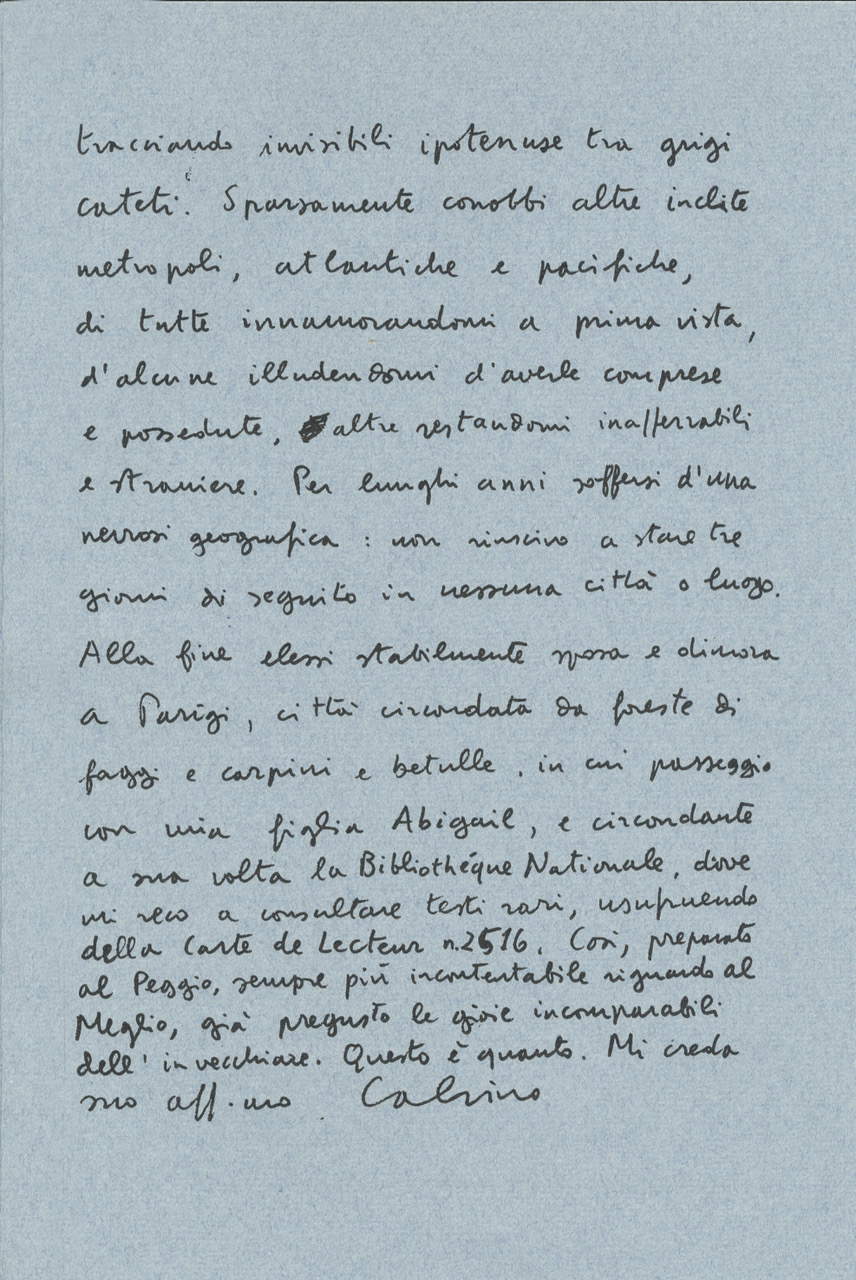 tracciando invisibili ipotenuse tra grigi
cateti. Sparsamente conobbi altre inclite
metropoli, atlantiche e pacifiche,
di tutte innamorandomi a prima vista,
d'alcune illudendomi d'averle comprese
e possedute, altre restandomi inafferrabili
e straniere. Per lunghi anni soffersi d'una
nevrosi geografica : non riuscivo a stare tre
giorni di seguito in nessuna città o luogo.
Alla fine elessi stabilmente sposa e dimora
a Parigi, città circondata da foreste di
faggi e carpini e betulle, in cui passeggio
con mia figlia Abigail, e circondante
a sua volta la Bibliothéque Nationale, dove
mi reco a consultare testi rari, usufruendo
della Carte de Lecteur n.2516. Così, preparato
al Peggio, sempre più incontentabile riguardo al
Meglio, già pregusto le gioie incomparabili
dell'invecchiare. Questo è quanto. Mi creda
suo aff.mo Calvino